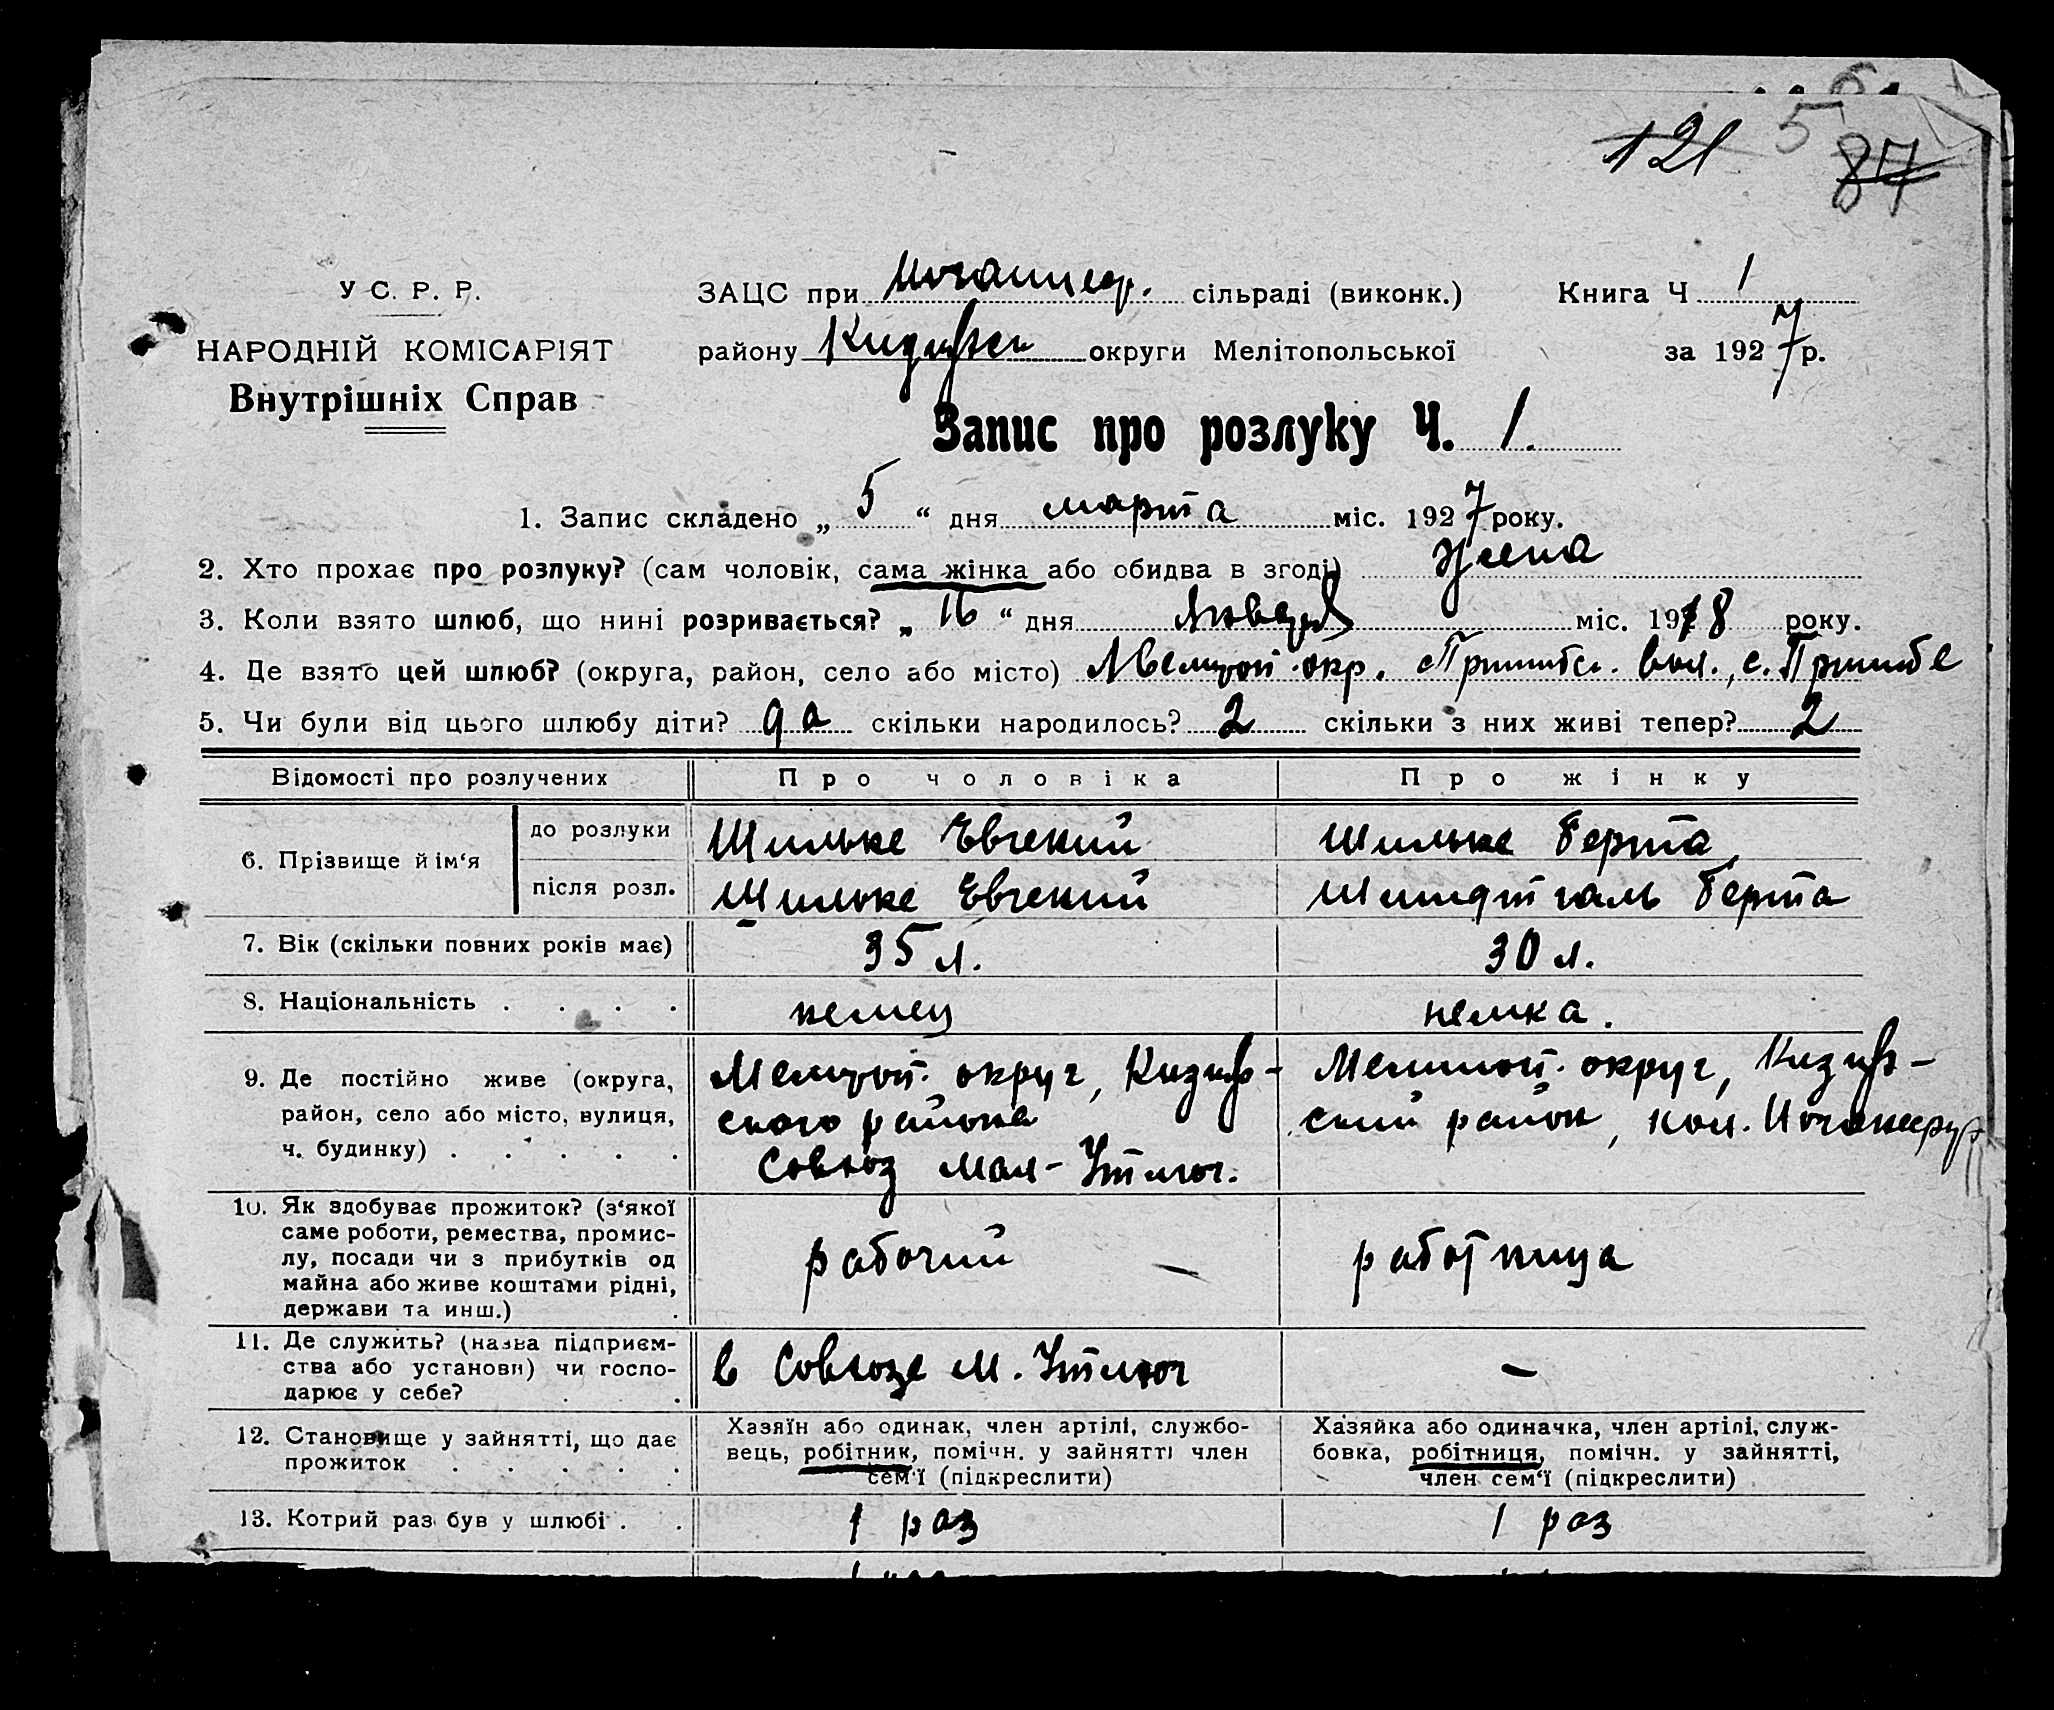 121 5 87
У С. Р. Р.
НАРОДНІЙ КОМІСАРІЯТ
Внутрішніх Справ
ЗАЦС при сільраді (виконк.) Книга Ч 1
району округи Мелітопольської за 1927 р.
Запис про розлуку Ч. 1.
1. Запис складено „ 5 “ дня марта міс. 1927 року.
2. Хто прохає про розлуку? (сам чоловік, сама жінка або обидва в згоді) Жена
3. Коли взято шлюб, що нині розривається? „ 16 “ дня января міс. 1918 року.
4. Де взято цей шлюб? (округа, район, село або місто) Мелитоп. окр. Пришибс. вол., с. Пришибе
5. Чи були від цього шлюбу діти? да скільки народилось? 2 скільки з них живі тепер? 2
Відомості про розлучених Про чоловіка Про жінку
6. Прізвище й ім‘я до розлуки Шильке Евгений Шильке Берта
після розл. Шильке Евгений Шмидтгаль Берта
7. Вік (скільки повних років має) 35 л. 30 л.
8. Національність . . . . немец немка.
9. Де постійно живе (округа, район, село або місто, вулиця, ч. будинку) . . . . . Мелитоп. округ, Кизияр-
ского района
Совхоз Мал-Утлюг. Мелитоп. округ, Кизияр-
ский район, кол.
10. Як здобуває прожиток? (з‘якої саме роботи, ремества, промис-
лу, посади чи з прибутків од
майна або живе коштами рідні,
держави та инш.) . рабочий — работница
11. Де служить? (назва підприєм-
ства або установи) чи госпо-
дарює у себе? . . в Совхозе М. Утлюг —
12. Становище у зайнятті, що дає
прожиток . . . . . Хазяїн або одинак, член артілі, службо-
вець, робітник, помічн. у зайнятті член
сем‘ї (підкреслити) Хазяйка або одиначка, член артілі, служ-
бовка, робітниця, помічн. у зайнятті,
член сем‘ї (підкреслити)
13. Котрий раз був у шлюбі . . 1 раз 1 раз